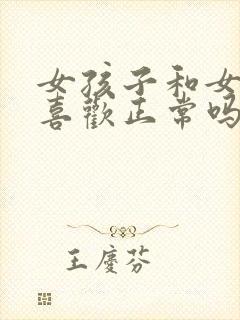 女孩子和女
喜歡正常吗
王慶芬